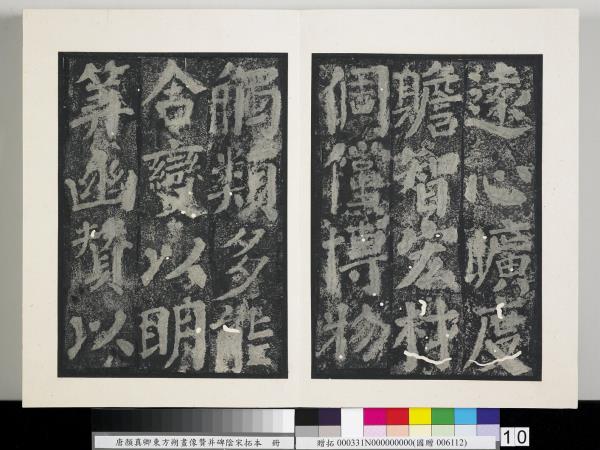 遠心曠度
贍智宏材
倜儻博物
觸類多能
合變以明
筭幽贊以
唐顏真卿東方朔畫像贊并碑陰宋拓本 冊
贈拓 000331N000000000(國贈 006112)
10